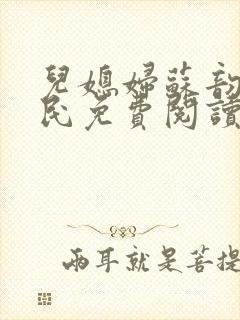 兒媳婦蘇韵
民免費閱讀
兩耳就是菩提